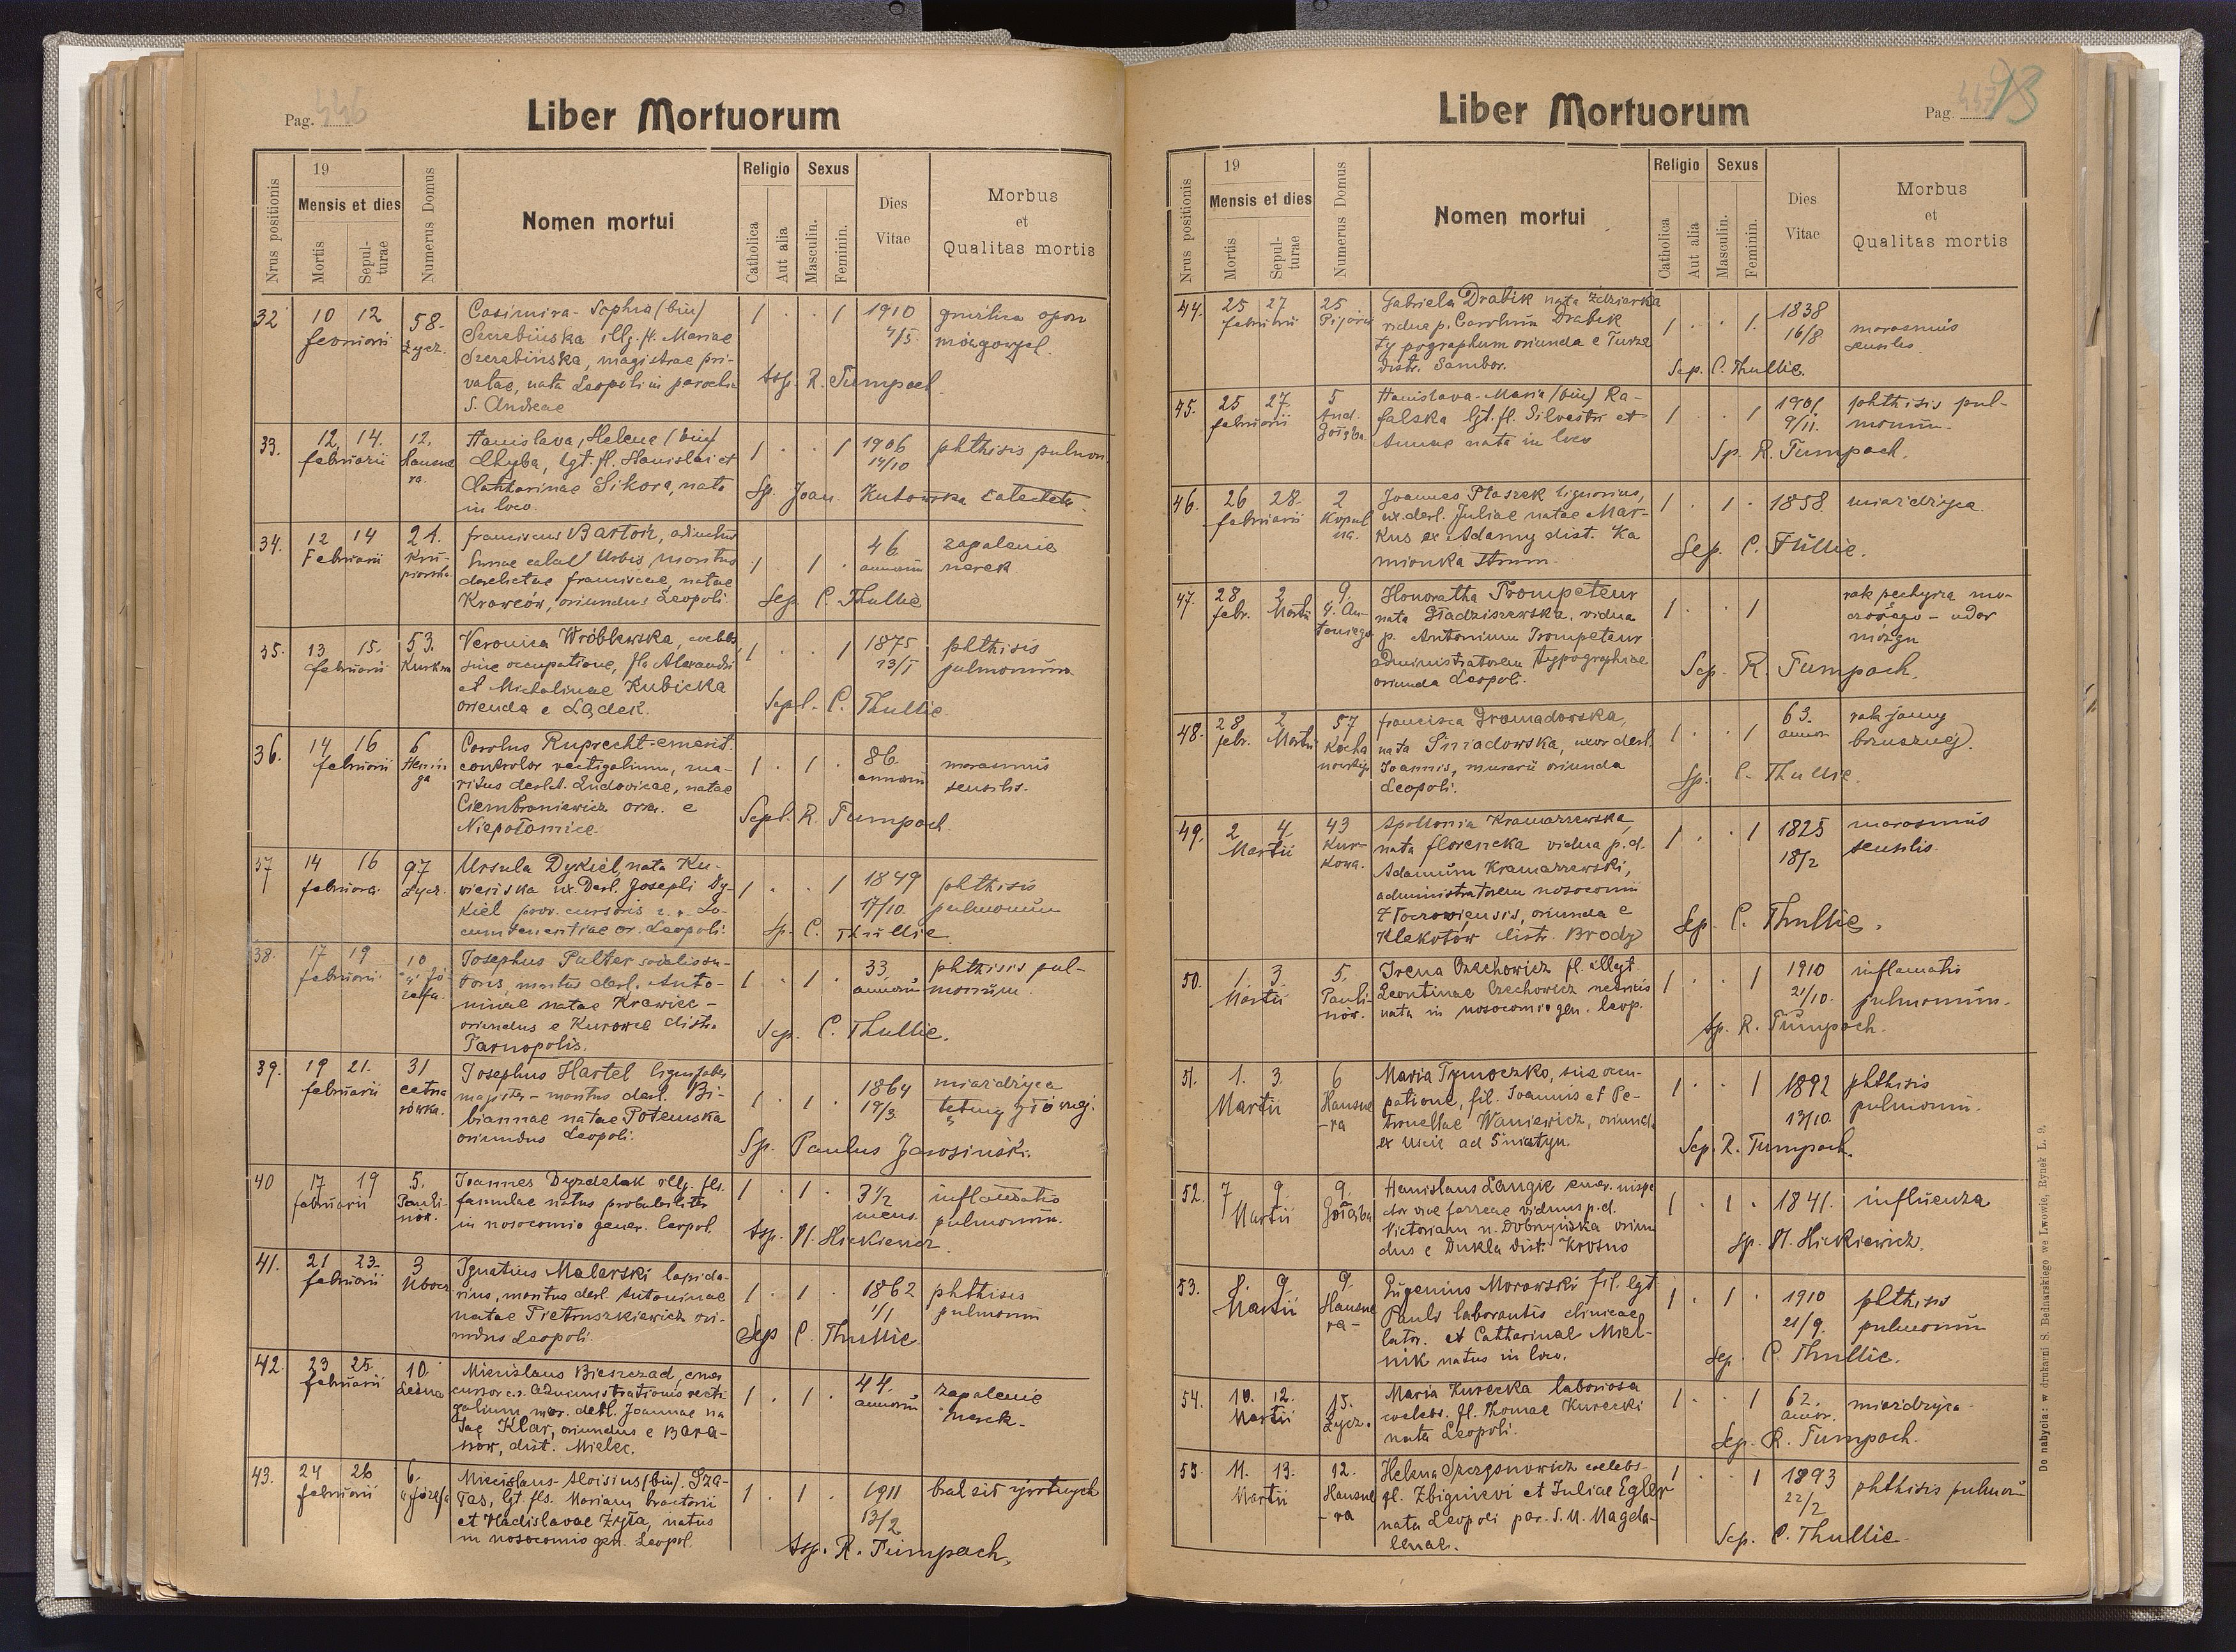 Pag. 446
Liber Mortuorum
Nrus positionis
19
Mensis et dies
Mortis
Sepulturae
Numerus Domus
Nomen mortui
Religio
Catholica
Aut alia
Sexus
Masculin.
Feminin.
Dies
Vitae
Morbus
et
Qualitas mortis
32 10 12 58. Casimira-Sophia (bin) 1 . . 1 1910 gruźlica opon
februarii Łycz. Szerebińska illg. fl. Mariae 4/5 mózgowych
Szerebińska, magistrae pri-
vatae, nata Leopoli in parochia Assp. R. Tumpach
S. Andreae
33. 12, 14. 12. Stanislava, Helena (bin) 1 . . 1 1906 phthisis pulmon.
februarii Hausne Chyba, lgt. fl. Stanislai et 14/10
ra. Catharinae Sikora, nata Sp. Joan. Kutowska
in loco
34. 12 14 21. franciscus Bartoń, 46 zapalenie
Februarii Urbis, maritus 1 . 1 . annorum nerek
derelictae franciscae, natae
Krawców, oriundus Leopoli. Sep. C. Thullie
35. 13 15. 53. Veronica Wróblewska, 1 . . 1 1875 phthisis
februarii Kurkowa sine occupatione, fl. Alexandri 13/1 pulmonum
et Michalinae Kubicka
oriunda e Lądek. Sepl. C. Thullie
36. 14 16 6 Carolus Ruprecht-emerit.
februarii controlor vectigalium, ma- 1 . 1 . 86. marasmus
ga ritus derel. Ludovicae, natae annorum senilis.
Ciembroniewicz e
Niepołomice. Sepl. R. Tumpach
37 14 16 97 Ursula Dykiel, nata Ku-
februarii Łycz. ux. derl. Josephi Dy- 1 . . 1 1849 phthisis
kiel cursoris 17/10. pulmonum
or. Leopoli. Sp. C. Thullie
38. 17 19 10 Josephus Pulter 33 phthisis pul-
februarii maritus derl. Anto- 1 . 1 . annorum monum.
ninae natae Krawiec-
oriundus e Kurowce distr. Sep. C. Thullie.
Tarnopolis.
39. 19 21. 31 Josephus Hartel
februarii magister - maritus derl. Bi- 1 . 1 . 1864 miażdżyca
biannae natae Potemska 19/3 tętnicy głównej.
oriundus Leopoli. Sp. Paulus Jarosiński.
40 17 19 5. Joannes Dyrdelak illg. fls.
februarii Pauli- famulae natus probabiliter 1 . 1 . 3 1/2 inflamatio
nów. in nosocomio gener. leopol. mens. pulmonum.
Assp. M. Hickiewicz.
41. 21 23. 3 Ignatius Malarski lapida-
februarii Ubocz rius, maritus derl. Antoninae 1 . 1 . 1862 phthisis
natae Pietruszkiewicz ori- 1/1 pulmonum
undus Leopoli. Sep C. Thullie
42. 23 25. 10. Miecislaus Bieszczad,
februarii Leśna cursor c.r. administrationis vecti 1 . 1 . 44. zapalenie
galium, mar. derl. Joannae na annorum nerek.
tae Klar, oriundus e Bara-
nów, dist. Mielec.
43. 24 26 6. Miecislaus-Aloisius (bin). Sza-
februarii Józefa łas, lgt. fls. Mariani tractorii 1 . 1 . 1911 brak sił żywotnych
et Vladislavae Żyła, natus 13/2
in nosocomio gen. Leopol. Assp. R. Tumpach.
Pag. 447
93
Liber Mortuorum
Nrus positionis
19
Mensis et dies
Mortis
Sepulturae
Numerus Domus
Nomen mortui
Religio
Catholica
Aut alia
Sexus
Masculin.
Feminin.
Dies
Vitae
Morbus
et
Qualitas mortis
44. 25 27 25 Gabriela Drabik nata
februarii Pijarów vidua p. Carolum Drabik 1 . . 1. 1838 marasmus
typographum oriunda e Turze 16/8 senilis.
distr. Sambor. Sep. C. Thullie.
45. 25 27. 5 Stanislava-Maria (bin) Ra-
februarii And. falska lgt. fl. Silvestri et 1 . . 1 phthisis pul-
Gołąba Annae nata in loco 9/11. monum.
Sp. R. Tumpach.
46. 26 28. 2 Joannes Ptaszek lignarius, 1 . 1 . 1858. miażdżyca.
februarii Kopal ux. derl. Juliae natae Mar-
na. kus ex Adamy dist. Ka
mionka Strum. Sep. C. Tullie.
47. 28 2 9. Honoratha Trompeteur rak pęcherza mo-
febr. Martii nata Gładziszewska, vidua 1 . 1 czowego - udar
toniego p. Antonium Trompeteur mózgu
administratorem typographiae Sep. R. Tumpach.
oriunda Leopoli.
48. 28 2 57 francisca Gromadowska, 63. rak jamy
febr. Martii Kocha nata Śniadowska, uxor derl. 1 . . 1 annor. brzusznej.
nowskiego Joannis, murarii oriunda
Leopoli. Sp. C. Thullie.
49. 2 4. 43 Apollonia Kramarzewska, 1 . . 1 1825 marasmus
Martii Kur- nata florencka vidua p. d. 18/2 senilis.
kowa. Adamum Kramarzewski,
administratorem nosocomii
Złoczowiensis, oriunda e
Klekotów distr. Brody Sep. C. Thullie.
50. 1. 3. 5. Irena Orzechowicz fl. illegt 1910 inflamatio
Martii Pauli- Leontinae Orzechowicz 1 . . 1 21/10. pulmonum.
nów. nata in nosocomio gen. leop.
Sp. R. Tumpach.
51. 1. 3. 6 Maria Tymoczko, sine occu-
Martii Hausne patione, fil. Joannis et Pe- 1 . . 1 1892 phthisis
-ra tronellae Waniewicz, oriund. 13/10. pulmonum.
ex Uście ad Śniatyn. Sep. R. Tumpach.
52. 7 9. 9. Stanislaus Langie emer. inspe
Martii Gołąba ctor viae ferreae viduus p. d. 1 . 1 . 1841. influenza
Victoriam n. Dobrzyńska oriun
dus e Dukla dist. Krosno Sp. M. Hickiewicz.
53. 8. 9. 9. Eugenius Morawski fil. lgt
Martii Hausne Pauli laborantis clinicae 1 . 1 . 1910 phthisis
ra- et Catharinae Miel- 21/9. pulmonum
nik natus in loco. Sep. C. Thullie.
54. 10. 12. 15. Maria Kurecka laboriosa
Martii Łycz. coelebs. fl. Thomae Kurecki 1 . . 1 62. miażdżyca.
nata Leopoli. annor.
Sep. R. Tumpach.
55. 11. 13. 12. Helena coelebs. 1893
Martii Hausne fl. Zbignievi et Juliae Egler 1 . . 1 22/2 phthisis pulmon.
-ra nata Leopoli par. S. M. Magda-
lenae. Sep. C. Thullie.
Do nabycia: w drukarni S. Bednarskiego we Lwowie, Rynek L. 9.